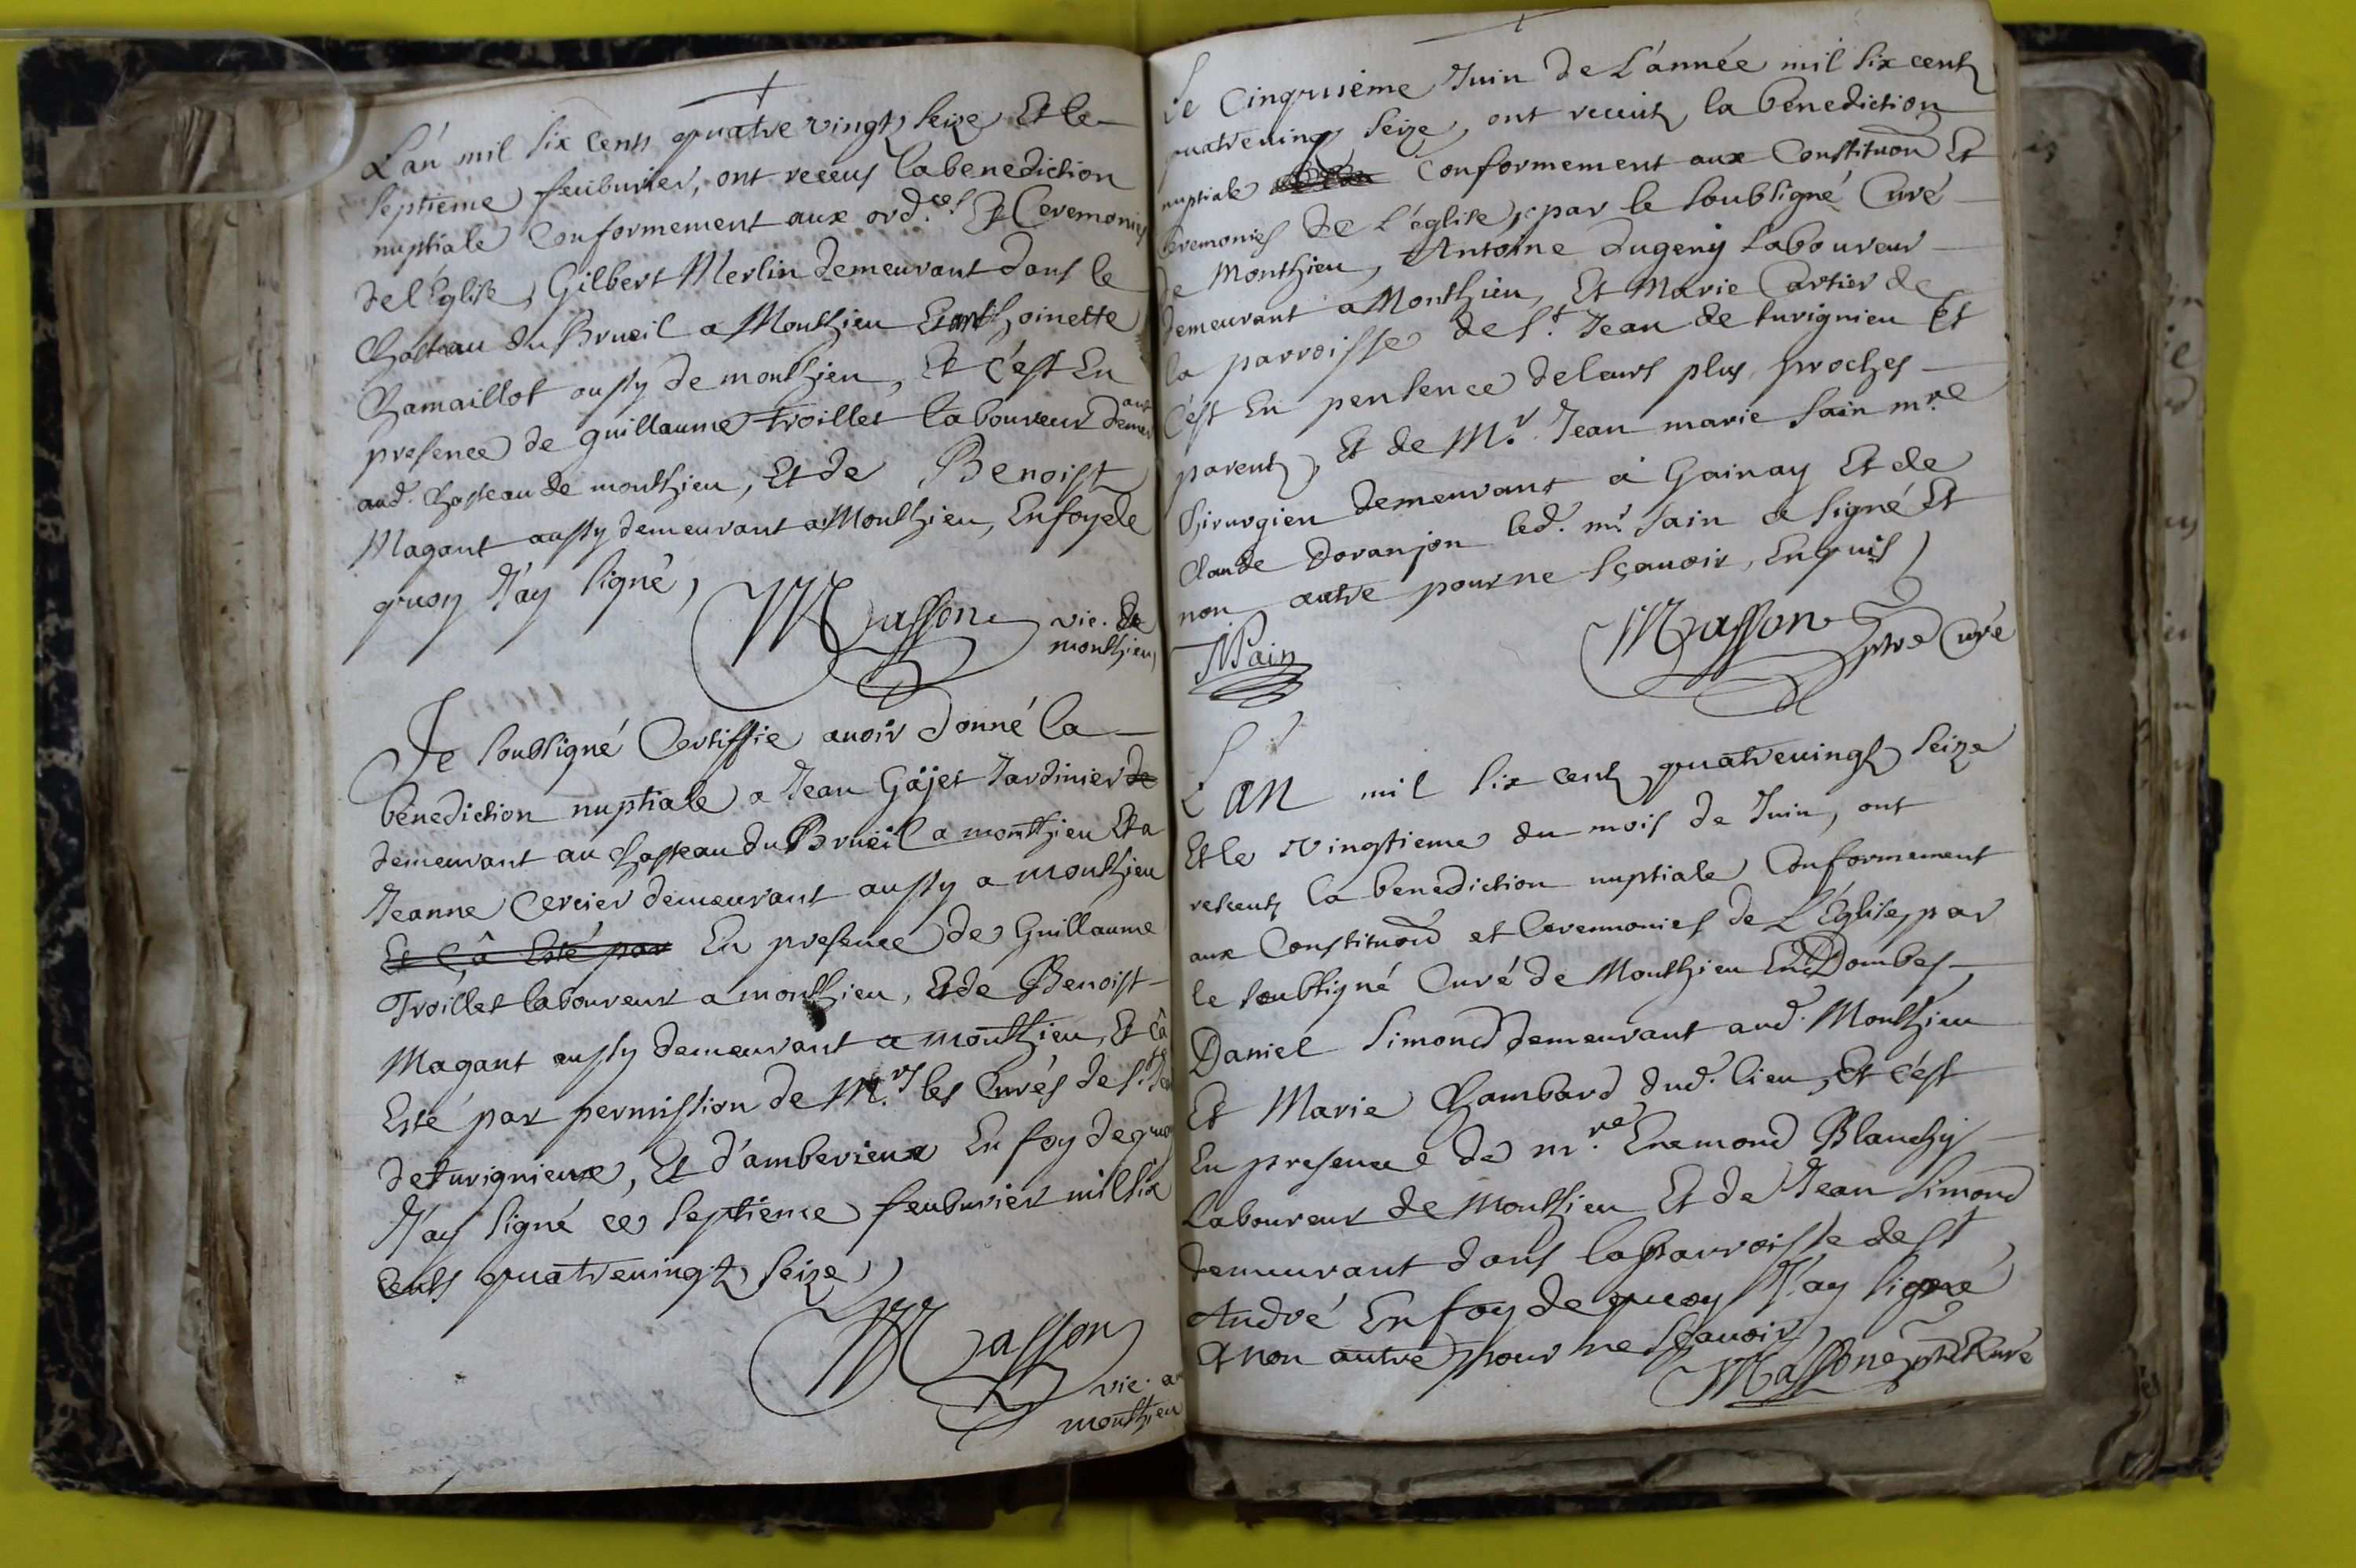 L'an mil six cents quatre vingts seize Et le
septieme feubvrier, ont receus la benediction
nuptiale Conformement aux ord.ces Et Ceremonies
de l'Eglise, Gilbert Merlin demeurant dans le
Chasteau du Brueil a Monthieu Et anthoinette
Chamaillot aussy de monthieu, Et c'est En
presence de guillaume Troillet laboureur demeurant
aud. Chasteau de monthieu, Et de Benoist
Magant aussy demeurant a Monthieu, En foy de
quoy J'ay signé,
Masson vic. de
monthieu
Je soubsigné Certiffie avoir donné la
benediction nuptiale a Jean Gäjet Jardinier de
demeurant au Chasteau du Brueil a monthieu Et a
Jeanne Cercier demeurant aussy a monthieu
Et Ç'â Esté par En presence de Guillaume
Troillet laboureur a monthieu, Et de Benoist
Magant aussy demeurant a monthieu, Et Ç'â
Esté par permission de M.rs les Curés de S.t Jean
de turignieux, Et d'amberieux En foy de quoy
J'ay signé ce septieme feubvrier mil six
Cents quatrevingts seize
Masson
vic. a
monthieu
Le Cinqruiéme Juin de L'année mil six cents
quatrevingts seize, ont receuts la benediction
nuptiale Conformement aux Constituõns Et
Ceremonies de l'église, par le soubsigné Curé
de Monthieu, Antoine dugeny Laboureur
demeurant a Monthieu, Et Marie Cartier de
la parroisse de s.t Jean de turignieu Et
C'est En pensence de leurs plus proches
parents, Et de M.r Jean marie sain m.re
Chirurgien demeurant á Gainay Et de
Claude Doranjon led. m.r sain a signé Et
non autre pour ne sçauoir, Enquis
JMSain
Masson
ptre Curé
L'an mil six cents quatrevingts seize
Et le vingtieme du mois de Juin, ont
receuts la benediction nuptiale Conformement
aux Constituõns et Ceremonies de L'Église, par
le soubsigné Curé de Monthieu En Dombes
Daniel Simond demeurant aud. Monthieu
Et Marie Chambard dud. lieu, Et c'est
En presence de m.re Enemond Blanchy
Laboureur de Monthieu Et de Jean Simond
demeurant dans la Parroisse de st
André En foy de quoy J'ay signé
Et non autre pour ne sçauoir
Masson ptre Curé